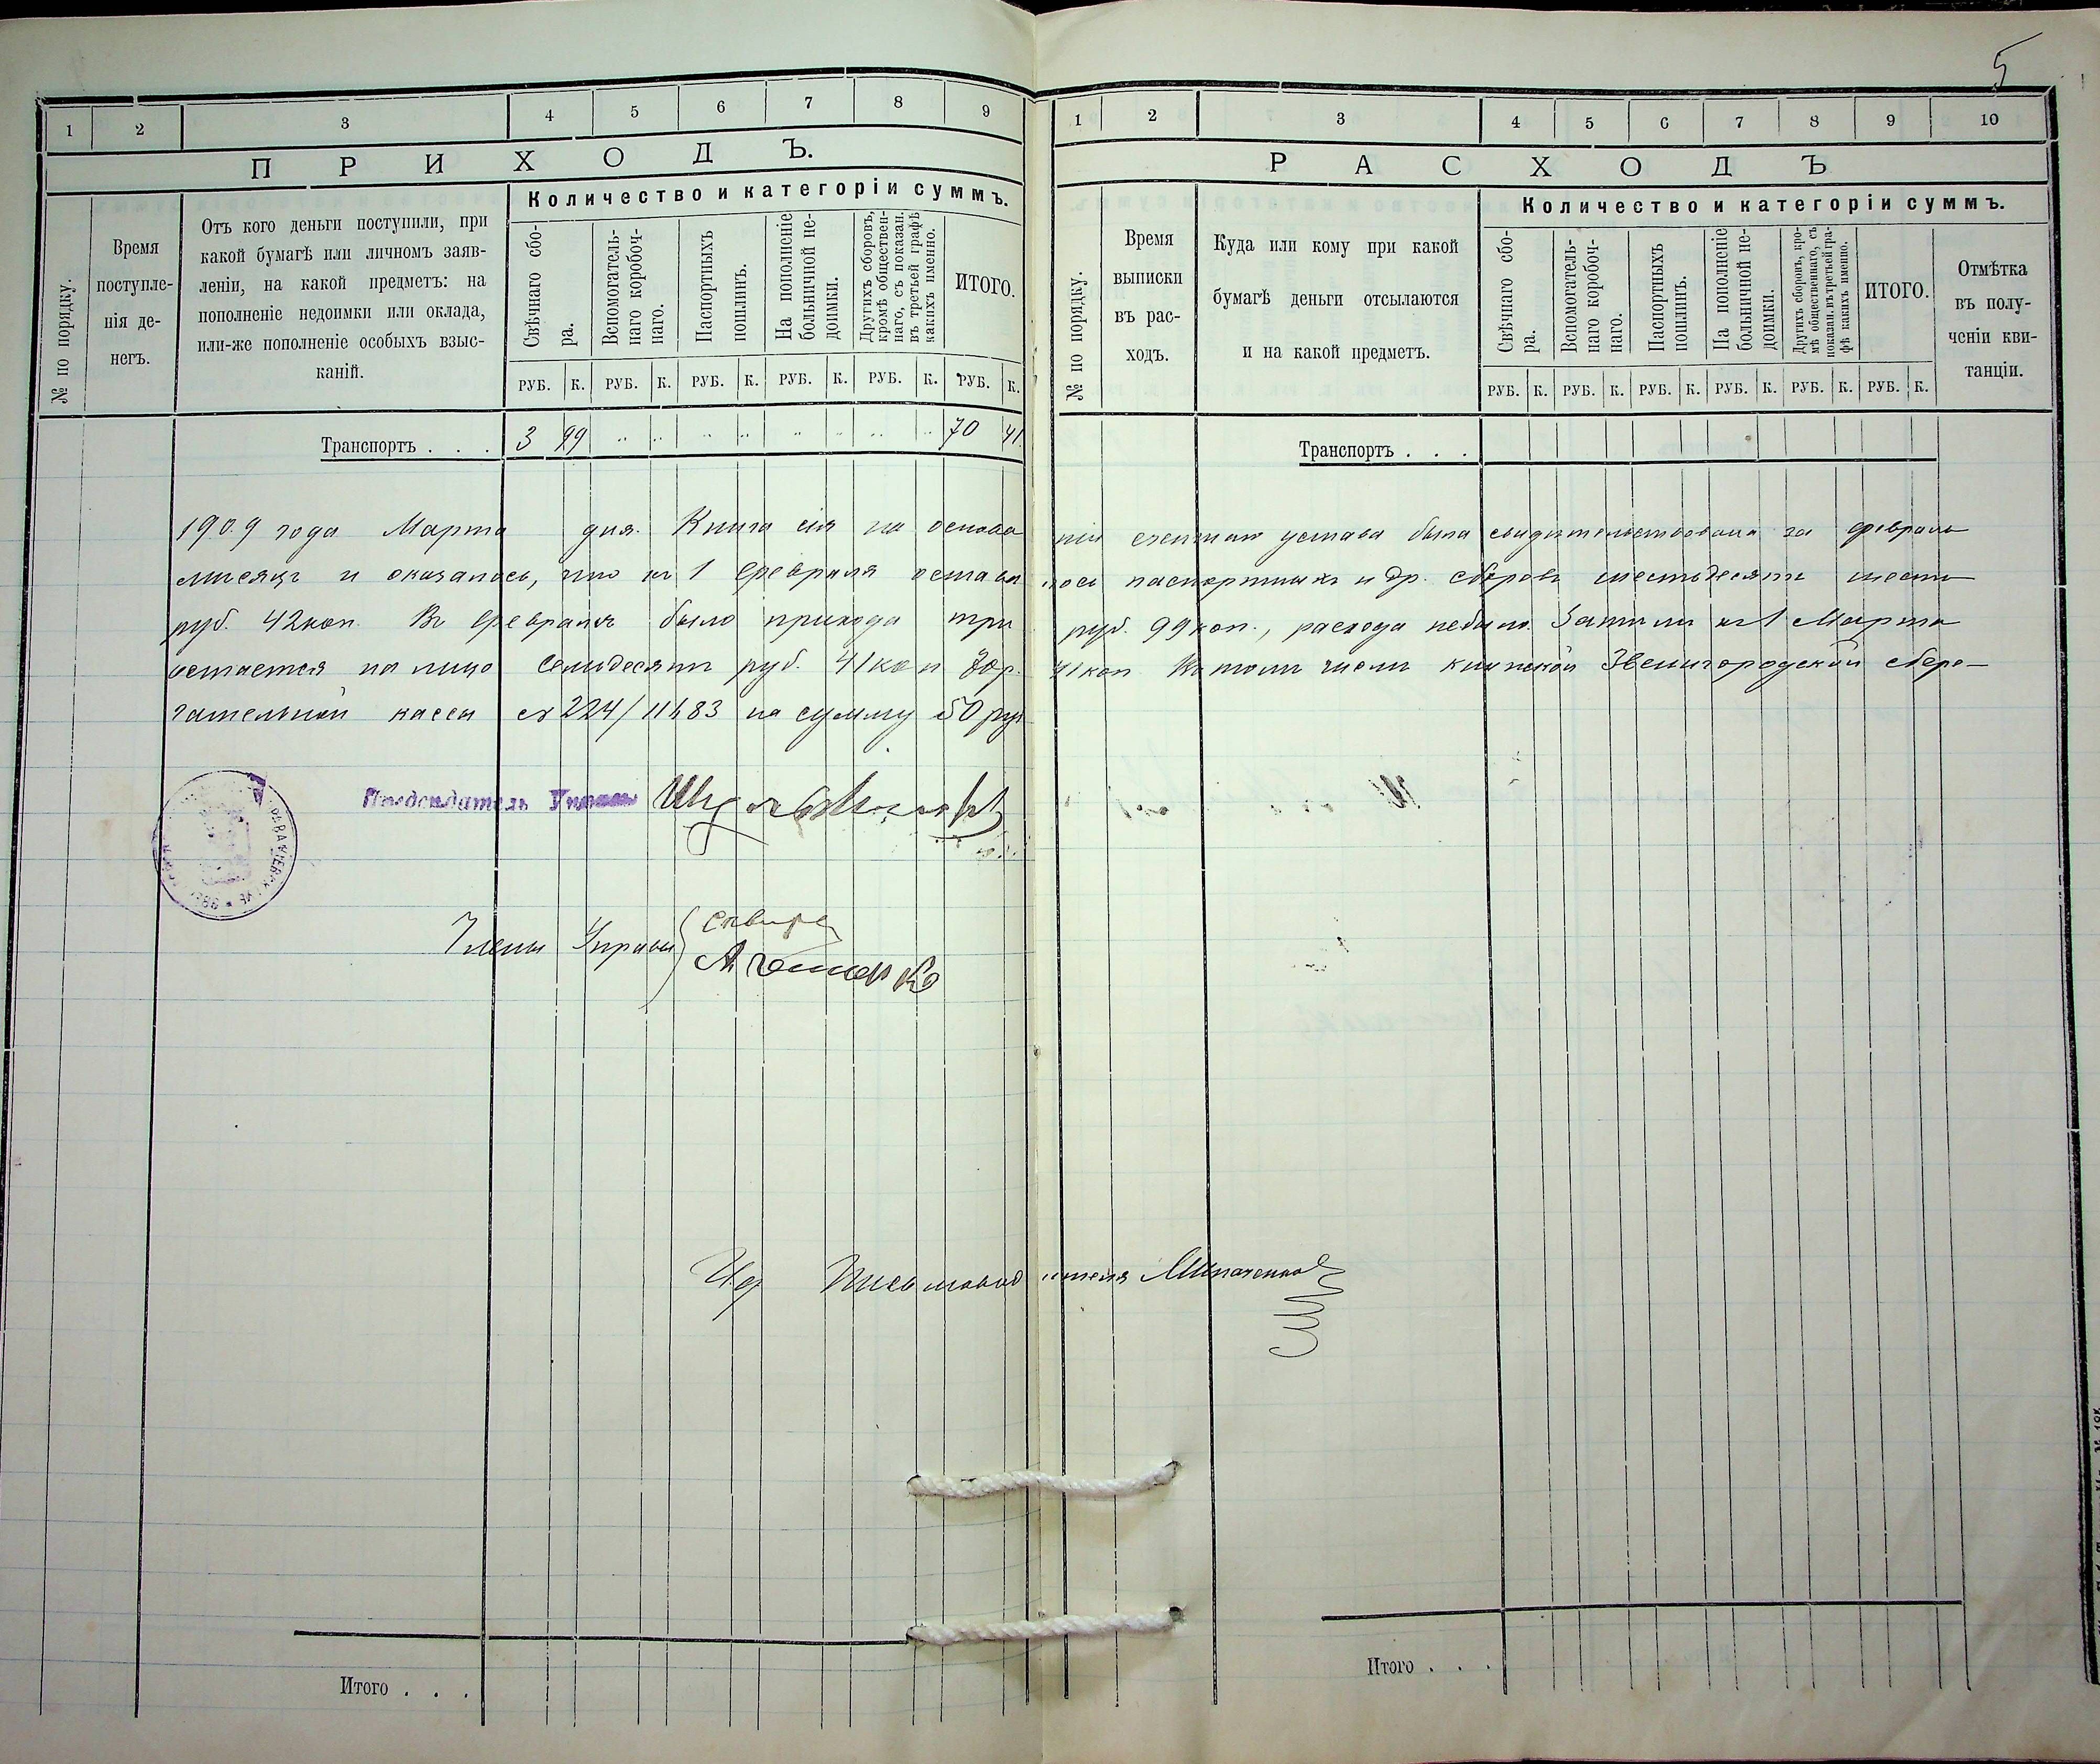 5
1 2 3 4 5 6 7 8 9
ПРИХОДЪ.
Количество и категоріи суммъ.
№ по порядку.
Время поступле-
нія де-
негъ.
Отъ кого деньги поступили, при
какой бумагѣ или личномъ заяв-
леніи, на какой предметъ: на
пополненіе недоимки или оклада,
или-же пополненіе особыхъ взыс-
каній.
Свѣчнаго сбо-
ра.
Вспомогатель-
наго коробоч-
наго.
Паспортныхъ
пошлинъ.
На пополненіе
больничной не-
доимки.
Другихъ сборовъ,
кромѣ обществен-
наго, съ показан.
въ третьей графѣ
какихъ именно.
ИТОГО.
РУБ. К. РУБ. К. РУБ. К. РУБ. К. РУБ. К. РУБ. К.
Транспортъ . . . 3 99 70 41.
1 2 3 4 5 6 7 8 9 10
РАСХОДЪ
Количество и категоріи суммъ.
№ по порядку.
Время
выписки
въ рас-
ходъ.
Куда или кому при какой
бумагѣ деньги отсылаются
и на какой предметъ.
Свѣчнаго сбо-
ра.
Вспомогатель-
наго коробоч-
наго.
Паспортныхъ
пошлинъ.
На пополненіе
больничной не-
доимки.
Другихъ сборовъ, кро-
мѣ общественнаго, съ
показан. въ третьей гра-
фѣ какихъ именно.
ИТОГО.
Отмѣтка
въ полу-
ченіи кви-
танціи.
РУБ. К. РУБ. К. РУБ. К. РУБ. К. РУБ. К. РУБ. К.
Транспортъ . . .
1909 года Марта дня. Книга сія на основа нiи устава была свидѣтельствована за февраль
мѣсяцъ и оказалось, что къ 1 февраля остава лось паспортныхъ и др. сборовъ шестьдесятъ шесть
руб. 42 коп. Въ февралѣ было прихода три руб. 99 коп., расхода небыло. Затѣмъ къ 1 Марта
остается на лицо семьдесятъ руб. 41 коп 70 р. 41 коп Въ томъ числѣ книжкой Звенигородской сбере-
гательной кассы за 224/11683 на сумму 50 руб
Предсѣдатель Управы
Члены Управы
И.д. Письмоводителя
Итого . . .
Итого . . .